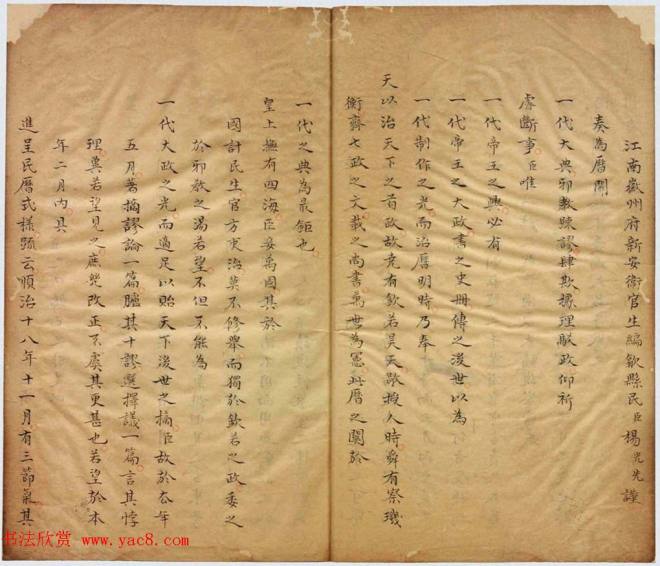 江南徽州府新安衛官生編歙縣民臣楊光先謹
奏為曆關
一代大典邪教踈謬肆欺據理駁政仰祈
睿斷事臣唯
一代帝王之興必有
一代帝王之大政書之史冊傳之後世以為
一代制作之光而治曆明時乃奉
天以治天下之首政故堯有欽若昊天敬授人時舜有察璣
衡齊七政之文載之尚書萬世為憲此曆之關於
一代之典為最鉅也
皇上撫有四海臣妾萬國其於
國計民生官方吏治莫不修舉而獨於欽若之政委之
於邪教之湯若望不但不能為
一代大政之光而適足以貽天下後世之摘臣故於去年
五月著摘謬論一篇臚其十謬選擇議一篇言其悖
理冀若望見之庶幾改正不虞其更甚也若望於本
年二月內具
進呈民曆式樣疏云順治十八年十一月有三節氣其
书法欣赏 www.yac8.com